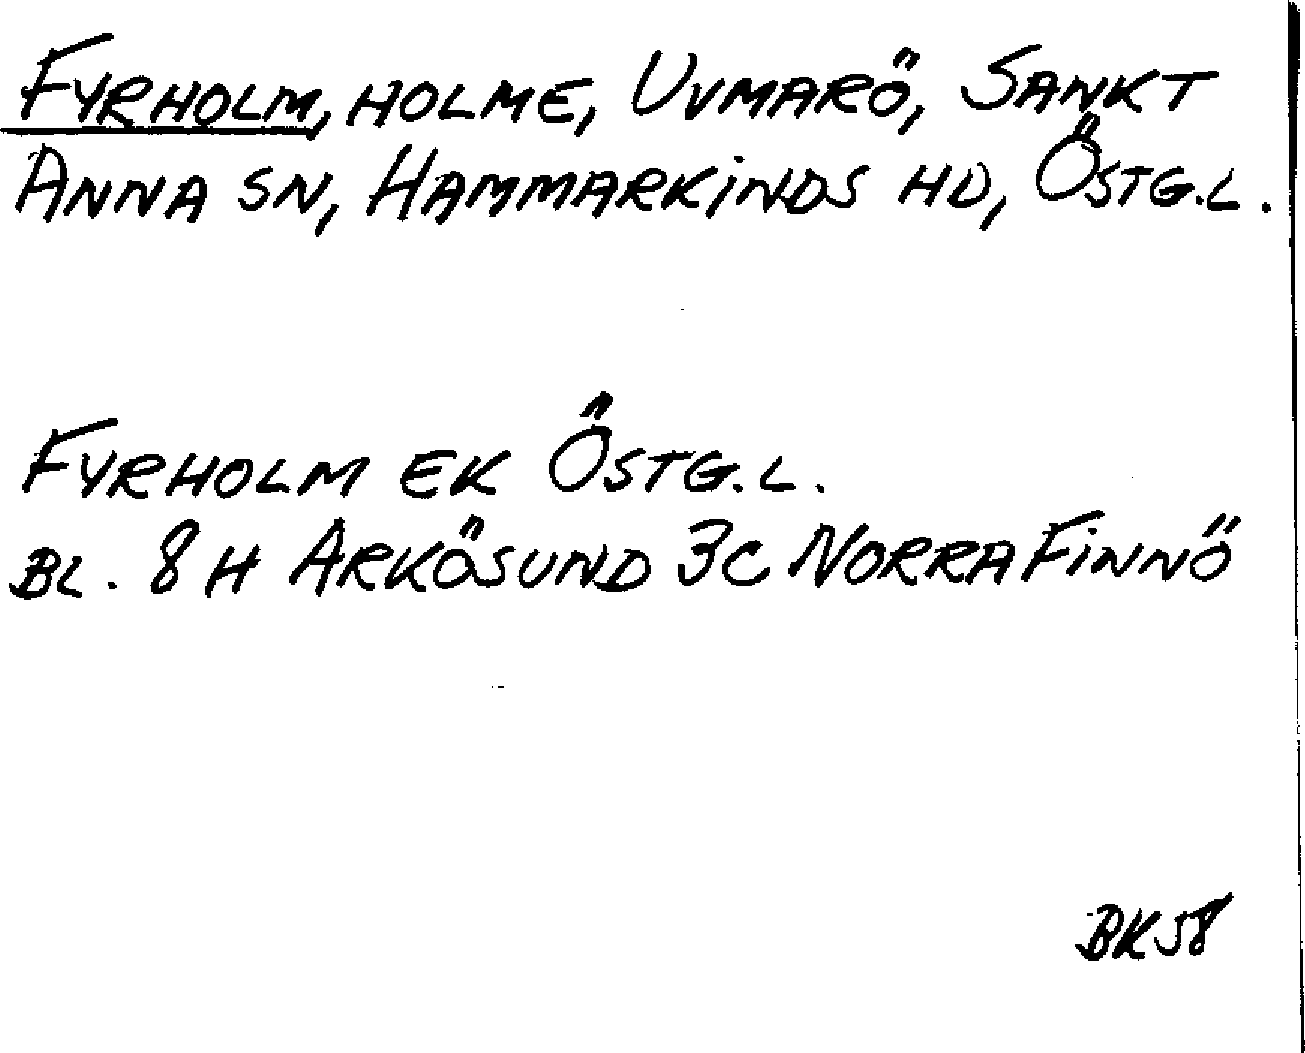 FYRHOLM, HOLME, UVMARÖ, SANKT
ANNA SN, HAMMARKINDS HD, ÖSTG.L.
FYRHOLM EK ÖSTG.L.
BL. 8H ARKÖSUND 3C NORRA FINNÖ
BK58